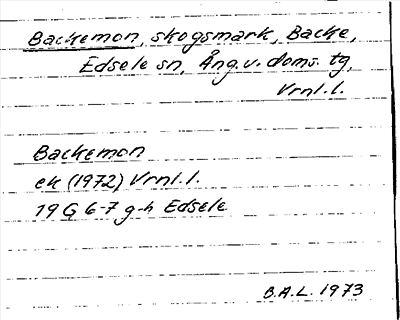 Backemon, skogsmark, Backe,
Edsele sn, Ång.v. doms. tg,
Vrnl.l.
Backemon
ek (1972) Vrnl.l.
19 G 6-7 g-h Edsele
B.A.L. 1973